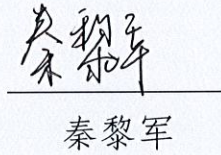 秦黎军
秦黎军